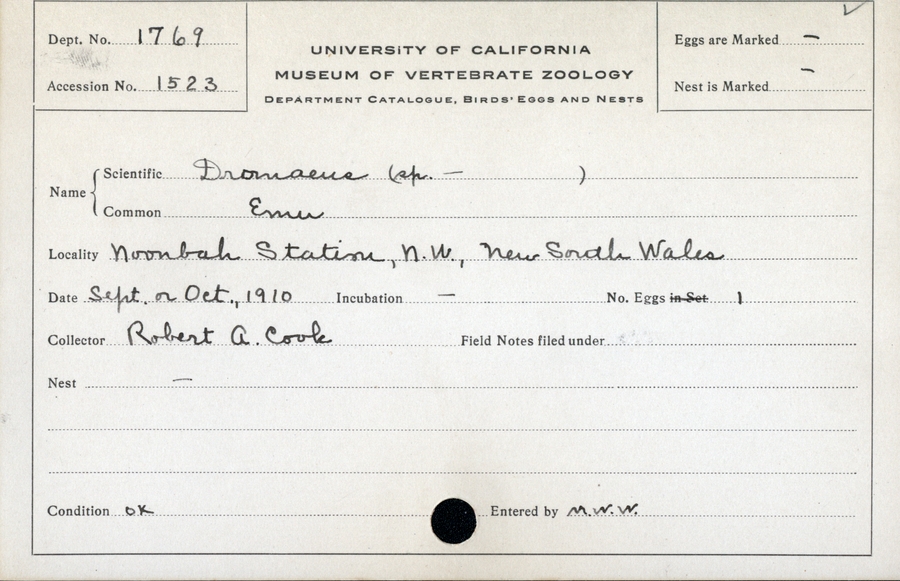 Dept. No. 1769
Accession No. 1523
UNIVERSITY OF CALIFORNIA
MUSEUM OF VERTEBRATE ZOOLOGY
DEPARTMENT CATALOGUE, BIRDS' EGGS AND NESTS
Eggs are Marked —
Nest is Marked —
Name
Scientific Dromaeus (sp. — )
Common Emu
Locality Noonbah Station, N.W., New South Wales
Date Sept. or Oct., 1910 Incubation — No. Eggs in Set 1
Collector Robert A. Cook Field Notes filed under
Nest —
Condition OK Entered by M.W.W.